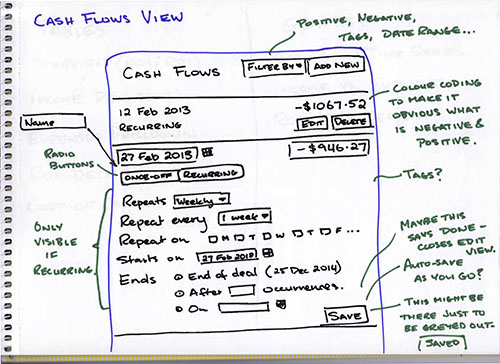 CASH FLOWS VIEW
POSITIVE, NEGATIVE,
TAGS, DATE RANGE...
CASH FLOWS
FILTER BY
ADD NEW
12 FEB 2013
RECURRING
-$1067.52
EDIT
DELETE
COLOUR CODING
TO MAKE IT
OBVIOUS WHAT
IS NEGATIVE &
POSITIVE.
Name
27 FEB 2013
-$946.27
RADIO
BUTTONS
ONCE-OFF
RECURRING
TAGS?
ONLY
VISIBLE
IF
RECURRING.
Repeats Weekly
Repeat every 1 week
Repeat on M T W T F ...
Starts on 27 Feb 2013
Ends End of deal (25 Dec 2014)
After occurrences.
On
SAVE
MAYBE THIS
SAYS DONE -
CLOSES EDIT
VIEW.
AUTO-SAVE
AS YOU GO?
THIS MIGHT BE
THERE JUST TO
BE GREYED OUT.
SAVED